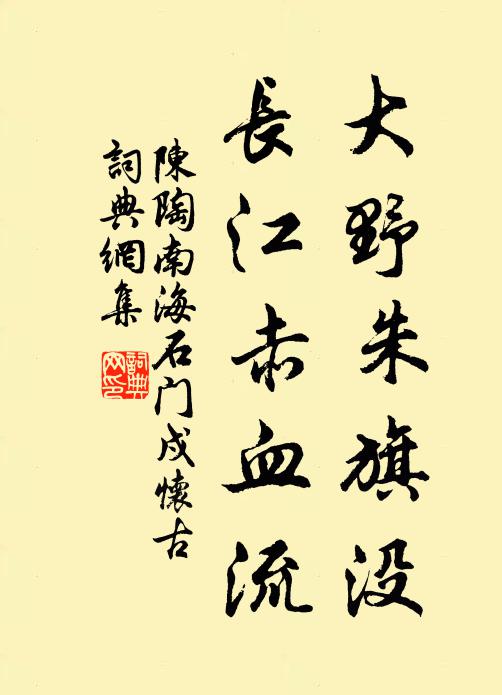 大野朱旗没
長江赤血流
陳陶南海石门戍懷古
詞典網集
詞典网印